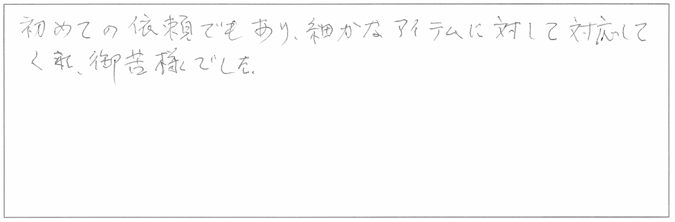 初めての依頼でもあり、細かなアイテムに対して対応して
くれ、御苦様でした。